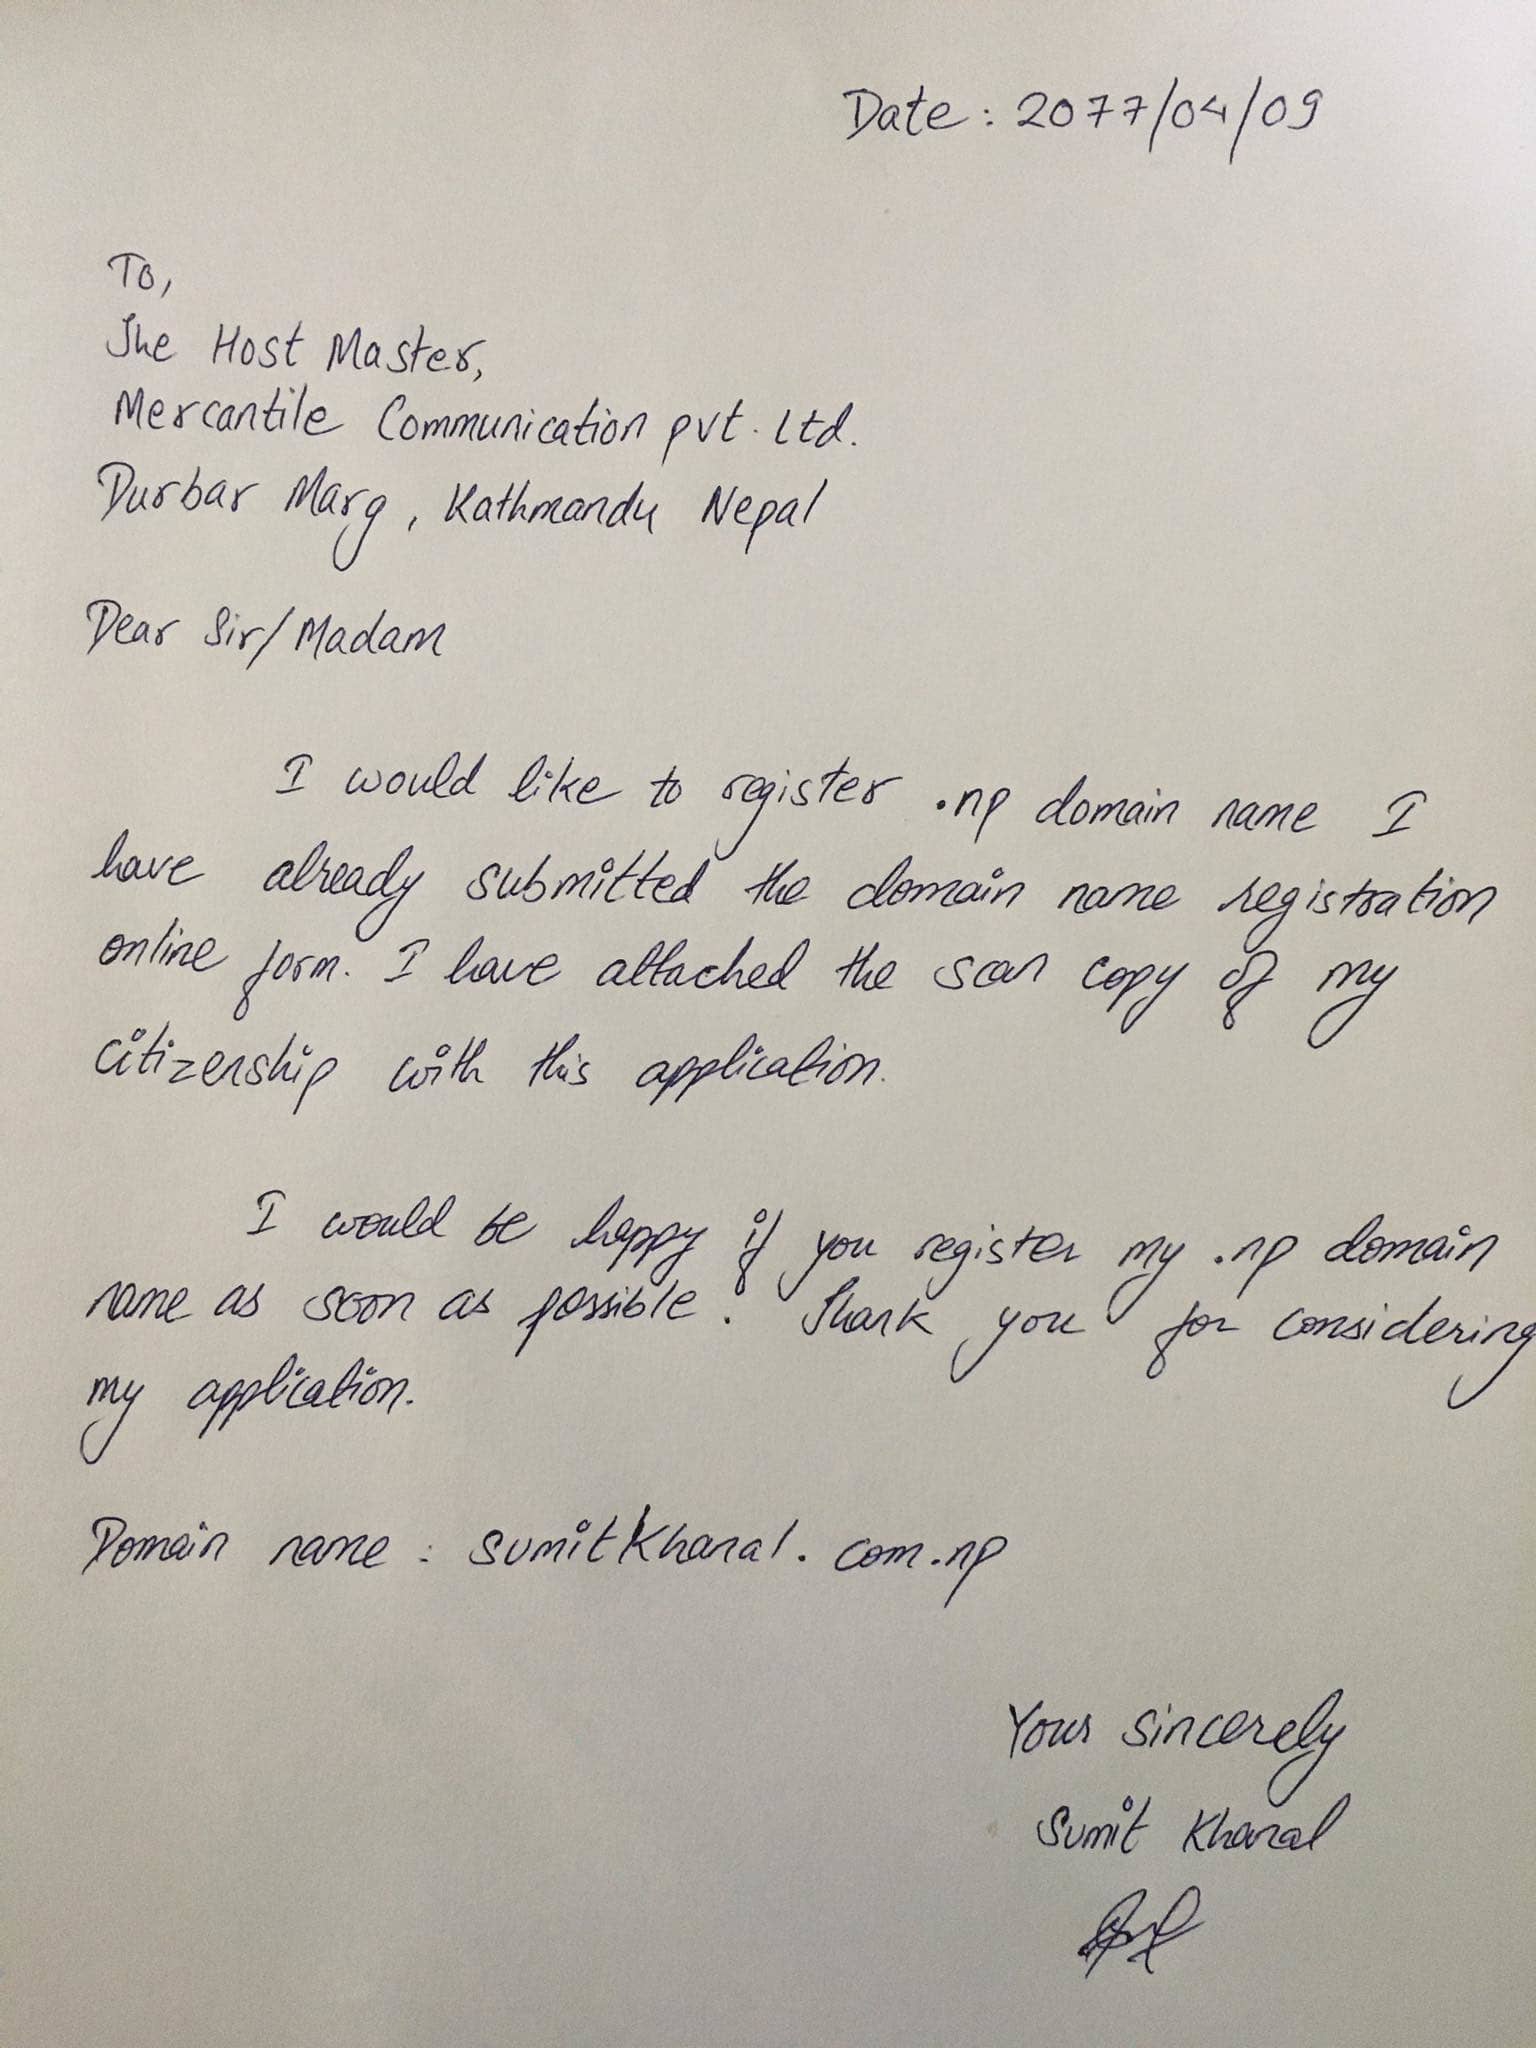 Date : 2077/04/09
To,
The Host Master,
Mercantile Communication pvt. Ltd.
Durbar Marg, Kathmandu Nepal
Dear Sir/Madam
I would like to register .np domain name I
have already submitted the domain name registration
online form. I have attached the scan copy of my
citizenship with this application.
I would be happy if you register my .np domain
name as soon as possible. Thank you for considering
my application.
Domain name : sumitkhanal.com.np
Your sincerely
Sumit Khanal